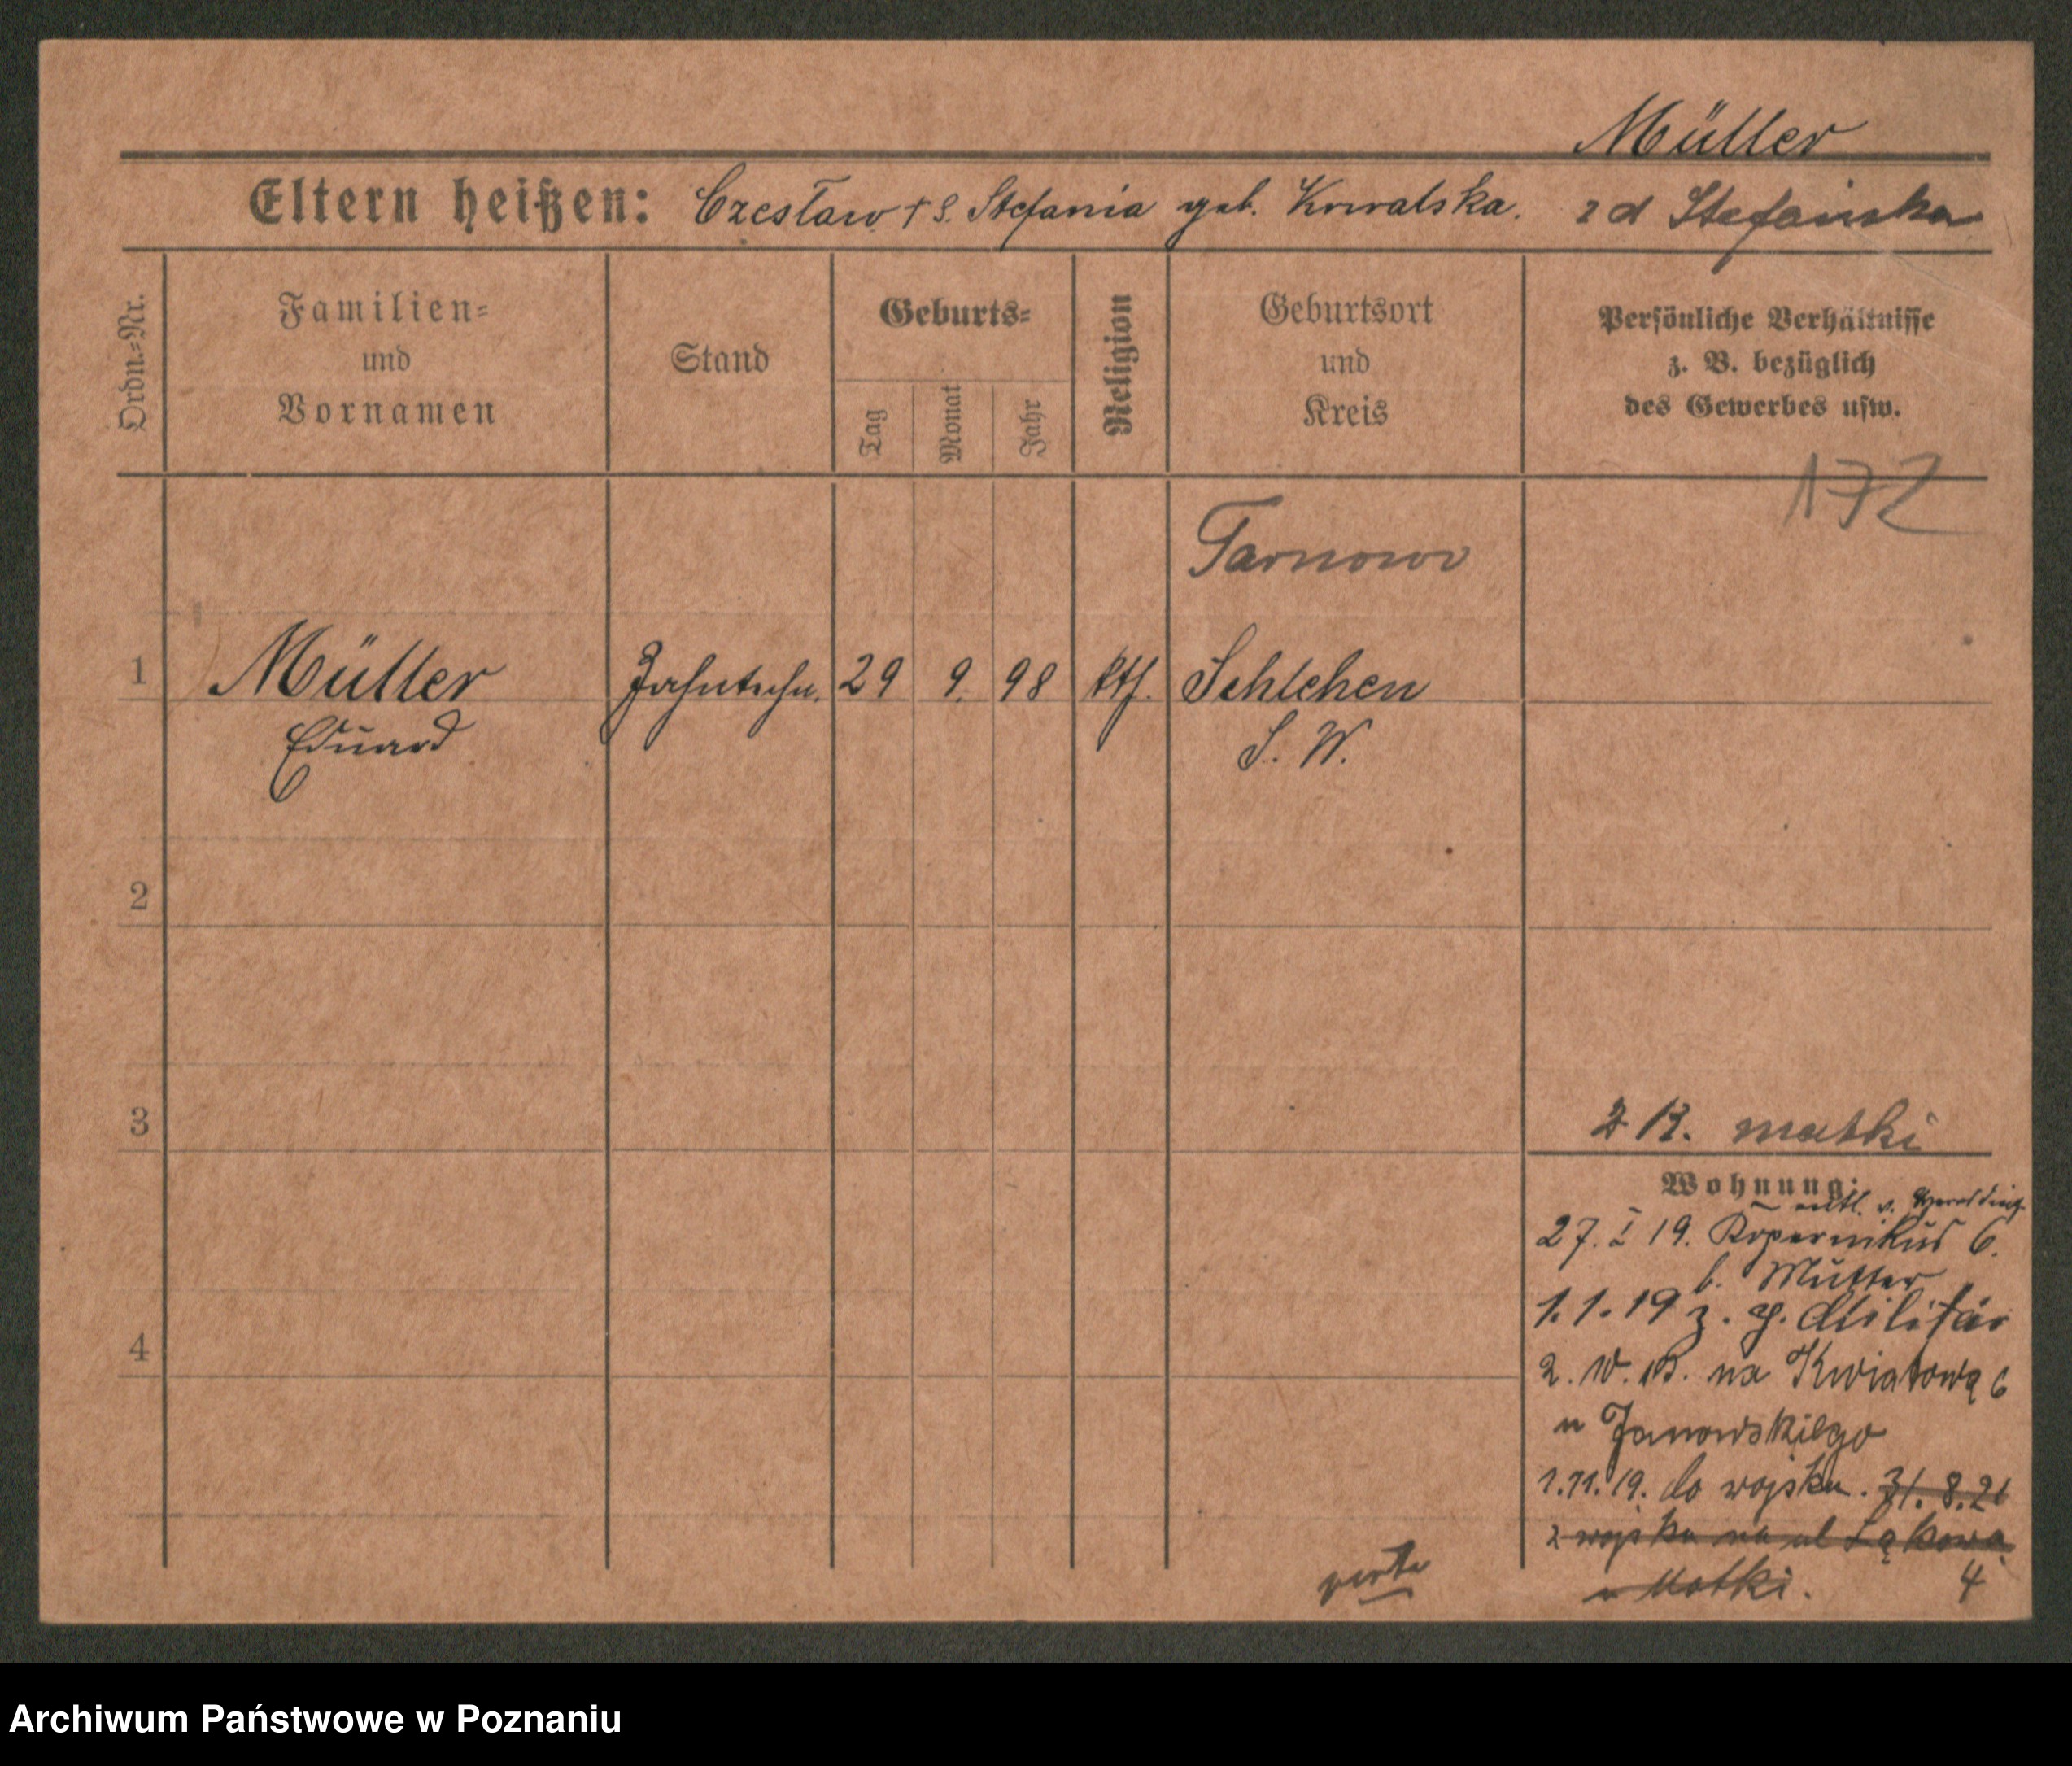 Müller
Eltern heißen: Czesław + S. Stefania geb. Kowalska. 2 d Stefańska
Ordn.-Nr.
Familien-
und
Vornamen
Stand
Geburts-
Tag
Monat
Jahr
Religion
Geburtsort
und
Kreis
Persönliche Verhältnisse
z. B. bezüglich
des Gewerbes usw.
172
Tarnowo
1 Müller Zahntechn. 29 9. 98 kth. Schlehen
Eduard S. W.
2
3
matki
Wohnung:
entl. v.
27. I 19. Kopernikus 6.
b. Mutter
1.1.19 z. p. Militär
4
2. W. 19. na Kwiatową 6
u Janowskiego
1.11.19. do wojska. 31.8.21
z wojska na ul Łąkowa
u Matki. 4
verte
Archiwum Państwowe w Poznaniu